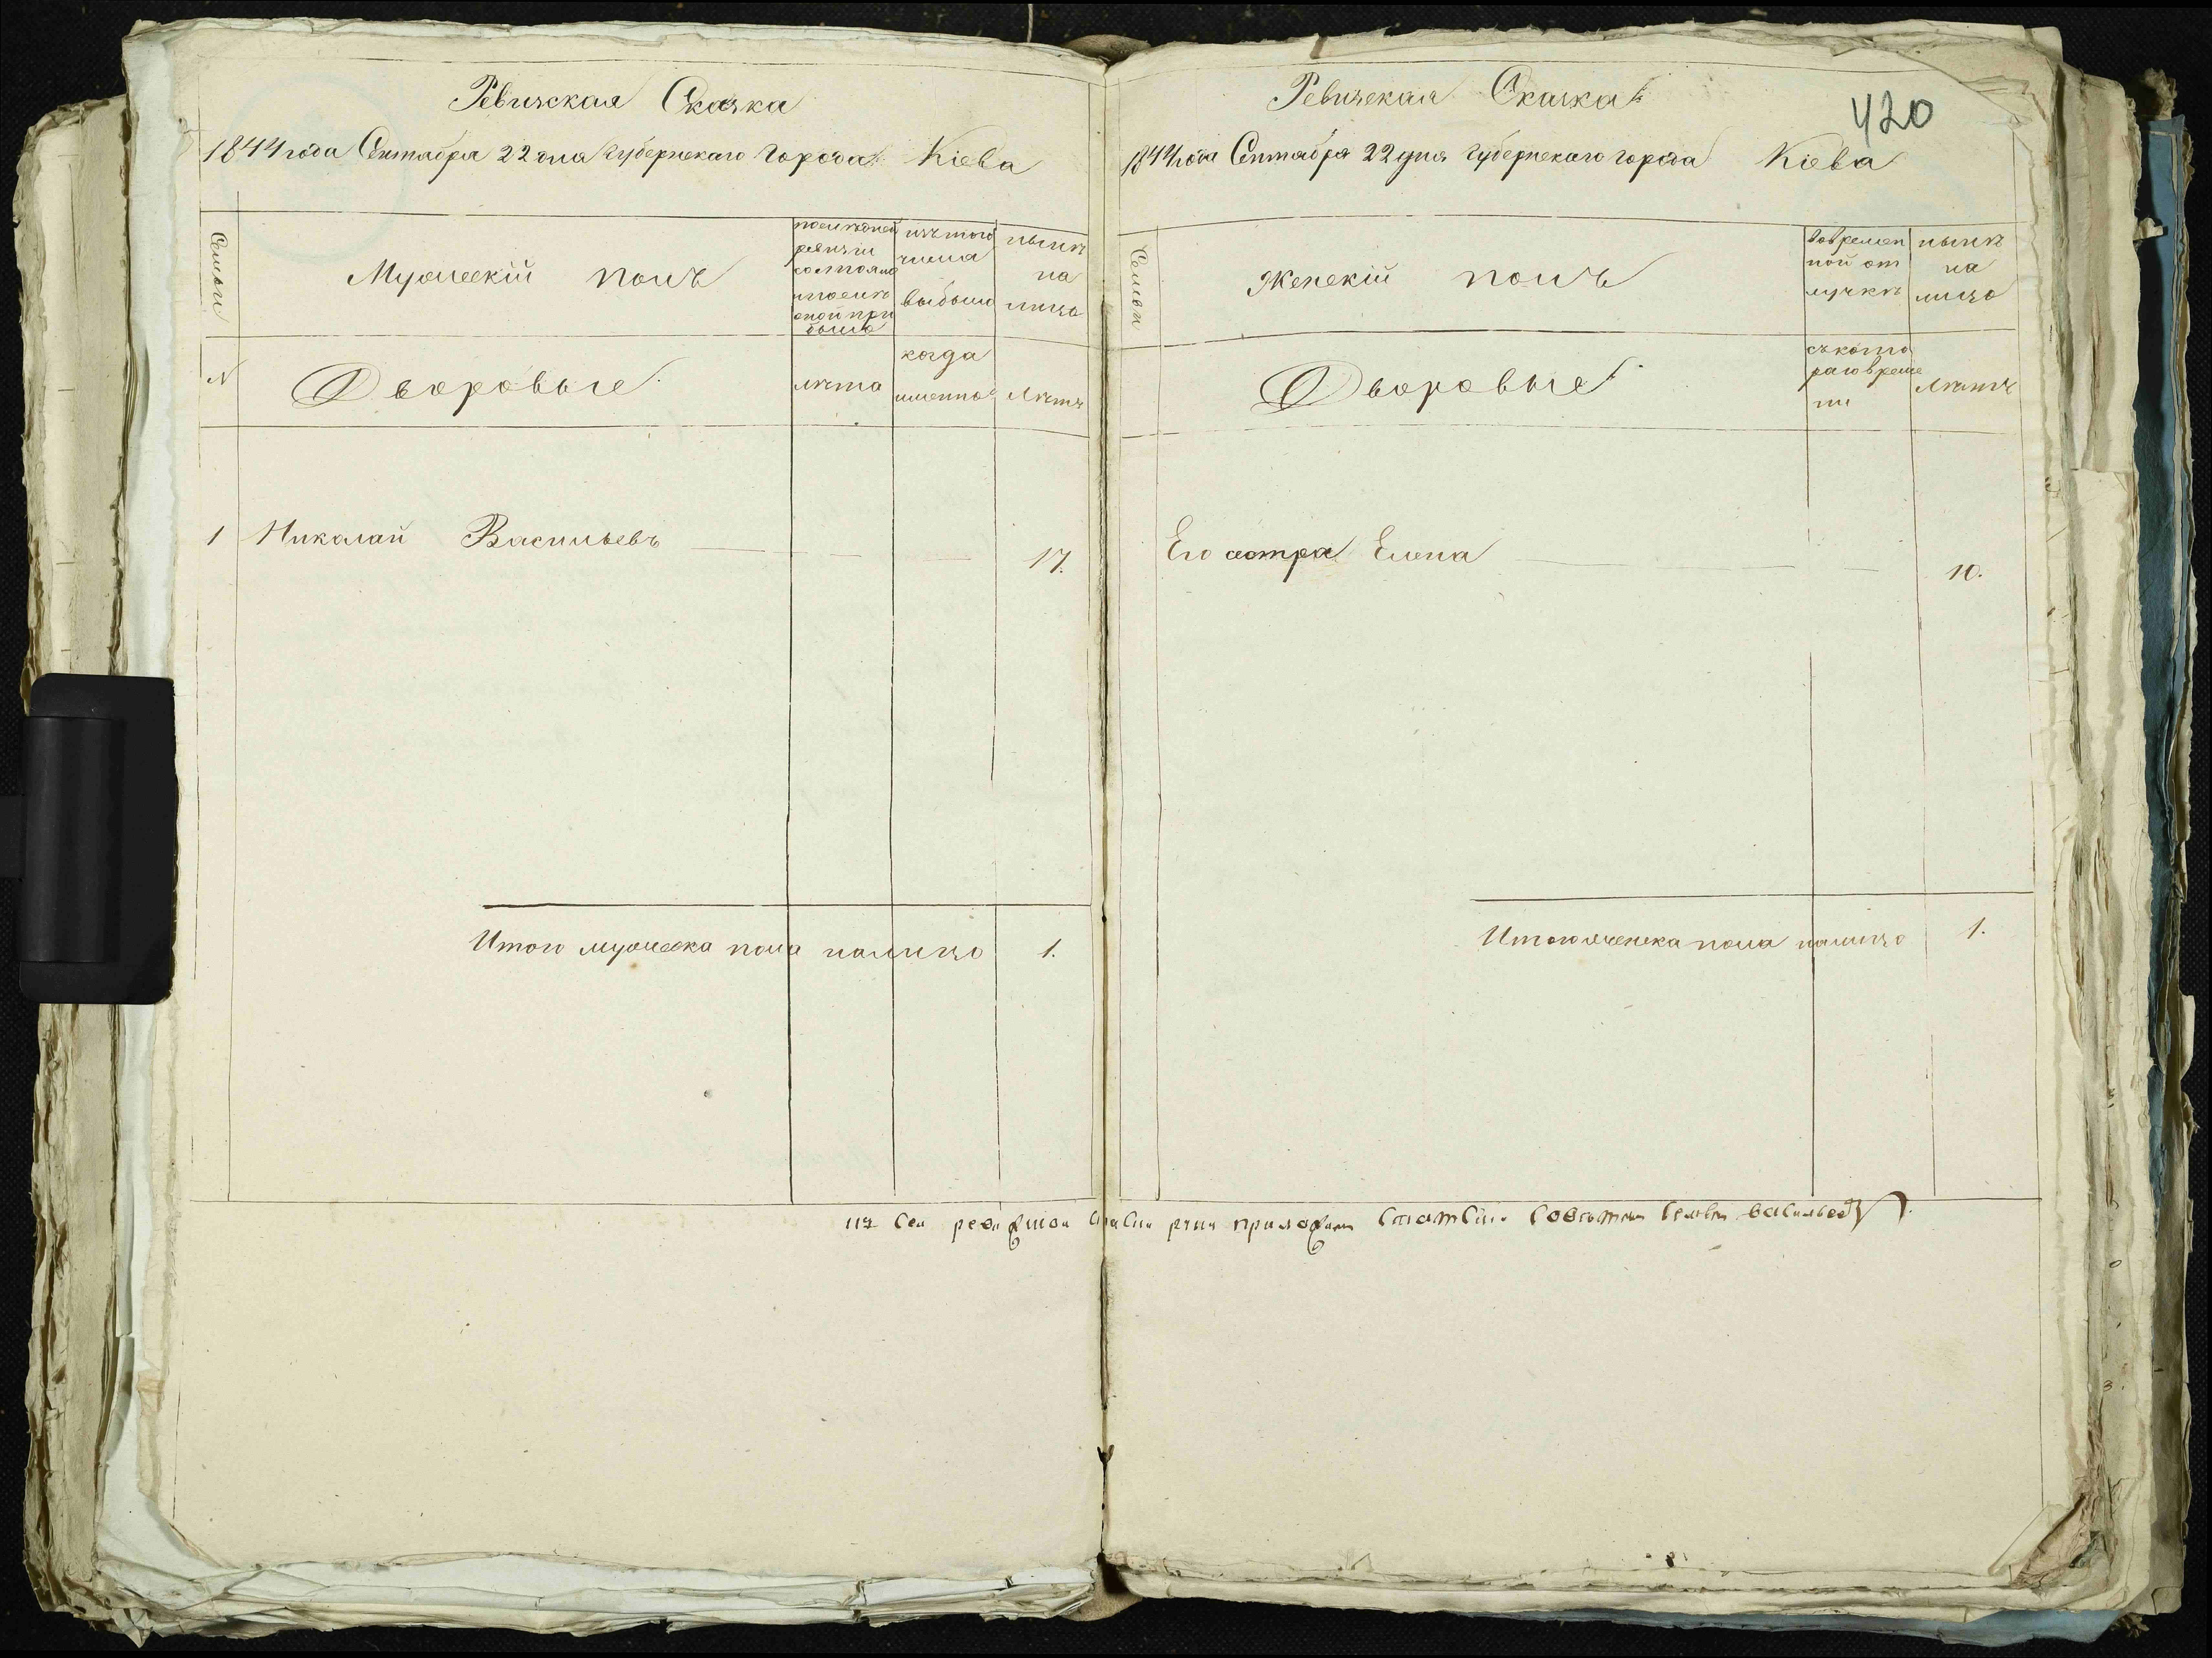 Ревизская Сказка
1844 года Сентября 22 дня Губернскаго Города Кіева
Семьи
Мужескій полъ
последней
ревизіи
состояло
и после
оной при
было
изъ того
числа
выбыло
ныне
на
лицо
N
Дворовые
лета
когда
именно
Летъ
1 Николай Васильевъ 17.
Итого мужеска пола налицо 1.
420
Ревизская Сказка
1844 года Сентября 22 дня Губернскаго города Кіева
Семьи
Женскій полъ
во времен
ной от
лучке
ныне
на
лицо
Дворовые
съ кото
раго време
ни
Летъ
Его сестра Елена 10.
Итого женска пола налицо 1.